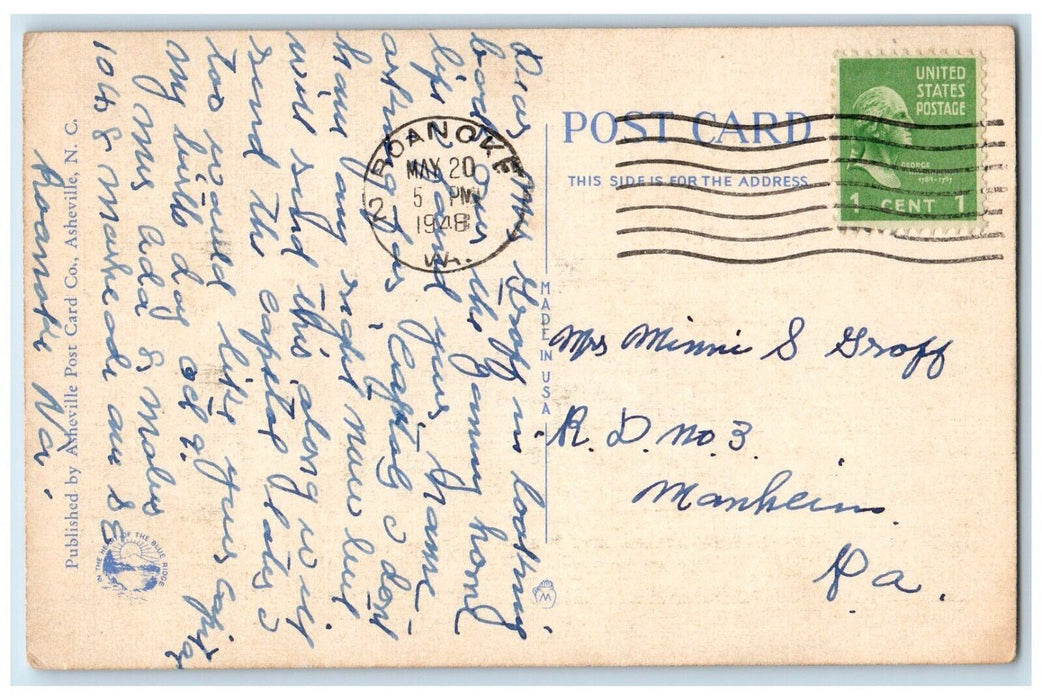 Dear Mrs Groff in looking
back over the Yammy home
life found your name
asking for Capitals I dont
have any right now but
will send this along with
send the capital later I
too would like your capital
my birth day oct 9.
Mrs Ada G. Mabes
1046 Morehead ave SE
Roanoke Va.
Published by Asheville Post Card Co., Asheville, N. C.
IN THE HEART OF THE BLUE RIDGE
ROANOKE
2
MAY 20
5 PM
1948
VA.
POST CARD
THIS SIDE IS FOR THE ADDRESS
MADE IN USA
M
UNITED
STATES
POSTAGE
GEORGE
1789-1797
1 CENT 1
Mrs Minnie S Groff
R. D. No. 3.
Manheim.
Pa.